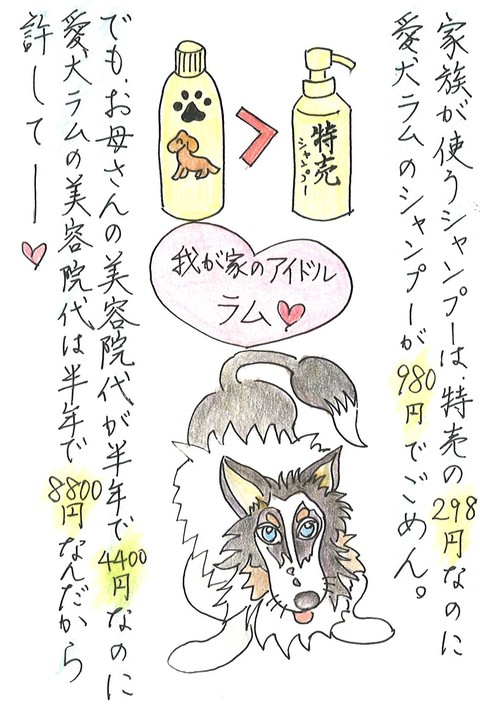 家族が使うシャンプーは特売の298円なのに
愛犬ラムのシャンプーが980円でごめん。
特売
シャンプー
我が家のアイドル
ラム
でも、お母さんの美容院代が半年で4400円なのに
愛犬ラムの美容院代は半年で8800円なんだから
許してー